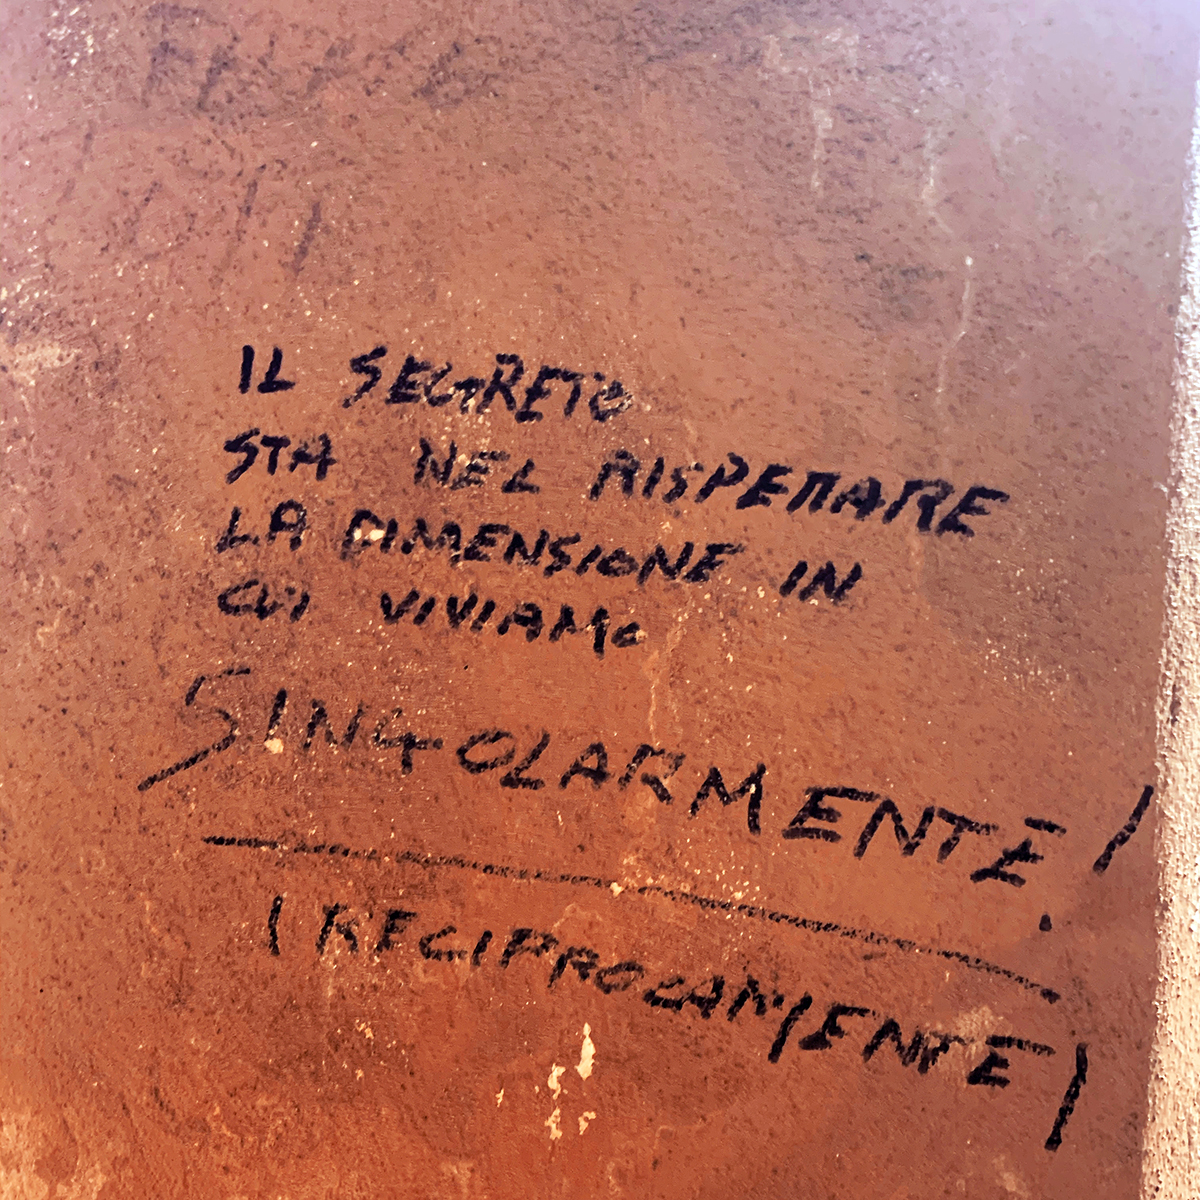 IL SEGRETO
STA NEL RISPETTARE
LA DIMENSIONE IN
CUI VIVIAMO
SINGOLARMENTE!
(RECIPROCAMENTE)